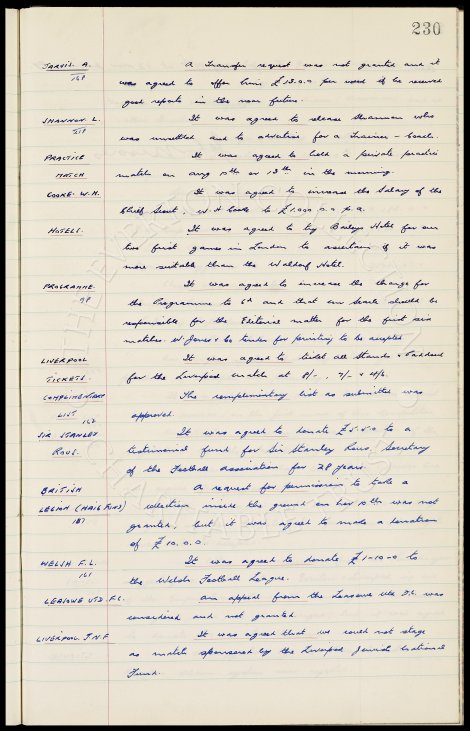 230
JARVIS. A. A transfer request was not granted and it
168 was agreed to offer him £13.0.0 per week if he received
good reports in the near future.
SHANNON. L. It was agreed to release Shannon who
218 was unsettled and to advertise for a Trainer - Coach.
PRACTICE It was agreed to hold a private practice
MATCH match on Aug 10th or 13th in the morning.
COOKE. W.H. It was agreed to increase the Salary of the
Chief Scout, W.H Cooke to £1,000 0.0 p.a.
HOTELS. It was agreed to try Baileys Hotel for our
two first games in London to ascertain if it was
more suitable than the Waldorf Hotel.
PROGRAMME. It was agreed to increase the charge for
the Programme to 6d and that should be
responsible for the Editorial matter for the first six
matches. W. Jones & Co tender for printing to be accepted.
LIVERPOOL It was agreed to ticket all Stands & Paddock
TICKETS. for the Liverpool match at 8/-, 7/- & 4/6.
COMPLIMENTARY The complimentary list as submitted was
LIST approved.
162
SIR STANLEY It was agreed to donate £5.5.0 to a
ROUS. testimonial fund for Sir Stanley Rous, Secretary
of the Football Association for 28 years.
BRITISH A request for permission to take a
LEGION (HAIG FUND) collection inside the ground on Nov 10th was not
187 granted, but it was agreed to make a donation
of £10.0.0.
WELSH F.L. It was agreed to donate £1-10-0 to
161 the Welsh Football League.
LEASOWE UTD. F.C. An appeal from the Leasowe Utd F.C. was
considered and not granted.
LIVERPOOL J.N.F It was agreed that we could not stage
a match sponsored by the Liverpool Jewish National
Fund.